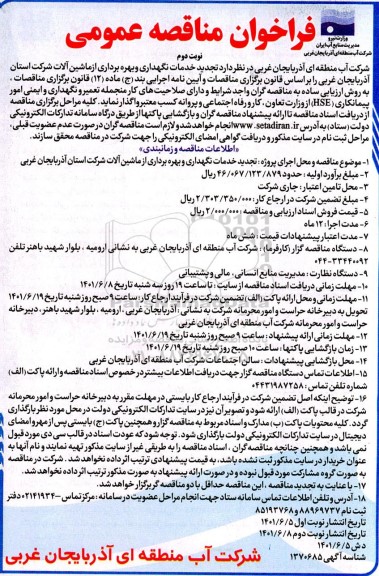 فراخوان مناقصه عمومی
وزارت نیرو
شرکت مدیریت منابع آب ایران
شرکت آب منطقه‌ای آذربایجان غربی
نوبت دوم
شرکت آب منطقه ای آذربایجان غربی در نظر دارد تجدید خدمات نگهداری و بهره برداری از ماشین آلات شرکت استان
آذربایجان غربی را بر اساس قانون برگزاری مناقصات و آیین نامه اجرایی بند (ج) ماده (۱۲) قانون برگزاری مناقصات ،
به روش ارزیابی ساده به مناقصه گران واجد شرایط و دارای صلاحیت های کار منجمله تعمیر و نگهداری و ایمنی امور
پیمانکاری (HSE) از وزارت تعاون ، کار و رفاه اجتماعی و پروانه کسب معتبر واگذار نماید. کلیه مراحل برگزاری مناقصه
از دریافت اسناد مناقصه تا ارائه پیشنهاد مناقصه گران و بازگشایی پاکتها از طریق درگاه سامانه تدارکات الکترونیکی
دولت (ستاد) به آدرس www.setadiran.ir انجام خواهد شد و لازم است مناقصه گران در صورت عدم عضویت قبلی،
مراحل ثبت نام در سایت مذکور و دریافت گواهی امضای الکترونیکی را جهت شرکت در مناقصه محقق سازند.
«اطلاعات مناقصه و زمانبندی»
۱- موضوع مناقصه و محل اجرای پروژه : تجدید خدمات نگهداری و بهره برداری از ماشین آلات شرکت استان آذربایجان غربی
۲- مبلغ برآورد اولیه : حدود ۴۶/۰۶۷/۱۲۳/۸۷۹ ریال
۳- محل تامین اعتبار : جاری شرکت
۴- مبلغ تضمین شرکت در ارجاع کار : ۲/۳۰۳/۳۵۰/۰۰۰ ریال
۵- قیمت فروش اسناد ارزیابی و مناقصه : ۲/۰۰۰/۰۰۰ ریال
۶- مدت اجرا : ۱۲ ماه
۷- مدت اعتبار پیشنهادات قیمت : شش ماه
۸- دستگاه مناقصه گزار (کارفرما) : شرکت آب منطقه ای آذربایجان غربی به نشانی ارومیه ، بلوار شهید باهنر تلفن
۳۳۴۴۰۰۹۲-۰۴۴
۹- دستگاه نظارت : مدیریت منابع انسانی ، مالی و پشتیبانی
۱۰- مهلت زمانی دریافت اسناد مناقصه از سایت : تا ساعت ۱۹ روز سه شنبه تاریخ ۱۴۰۱/۶/۸
۱۱- مهلت زمانی و محل ارائه پاکت (الف) تضمین شرکت در فرآیند ارجاع کار : ساعت ۹ صبح روز شنبه تاریخ ۱۴۰۱/۶/۱۹
تحویل به دبیرخانه حراست و امور محرمانه شرکت به نشانی : آذربایجان غربی . ارومیه . بلوار شهید باهنر، دبیرخانه
حراست و امور محرمانه شرکت آب منطقه ای آذربایجان غربی
۱۲- مهلت زمانی ارائه پیشنهاد : ساعت ۹ صبح روز شنبه تاریخ ۱۴۰۱/۶/۱۹
۱۳- زمان بازگشایی پاکتها : ساعت ۱۰ صبح روز شنبه تاریخ ۱۴۰۱/۶/۱۹
۱۴- محل بازگشایی پیشنهادات : سالن اجتماعات شرکت آب منطقه ای آذربایجان غربی
۱۵- اطلاعات تماس دستگاه مناقصه گزار جهت دریافت اطلاعات بیشتر در خصوص اسناد مناقصه و ارائه پاکت (الف)
شماره تلفن تماس : ۰۴۴۳۱۹۸۷۲۵۸
۱۶- توضیح اینکه اصل تضمین شرکت در فرآیند ارجاع کار بایستی در مهلت مقرر به دبیرخانه حراست و امور محرمانه
شرکت در قالب پاکت (الف) ارائه شود و تصویر آن نیز در سایت تدارکات الکترونیکی دولت در محل مورد نظر بارگذاری
گردد. کلیه محتویات پاکت (ب) ، مدارک و اسناد مربوط به مناقصه گزار و همچنین پاکت (ج) ، بایستی پس از مهر و امضای
دیجیتال در سایت تدارکات الکترونیکی دولت بارگذاری شود . توجه شود که عودت اسناد در قالب سی دی مورد قبول
نمی باشد و همچنین چنانچه مناقصه گران ، اسناد مناقصه را به طریقی غیر از سایت مذکور تهیه نمایند و نام آنها به
عنوان خریدار در سایت مذکور ثبت نشده باشد، به قیمت پیشنهادی ترتیب اثر داده نخواهد شد . شرکت در مناقصه
به صورت گروه مشارکت مورد قبول نبوده و در صورت ارائه پیشنهاد به صورت مذکور ترتیب اثر داده نخواهد شد.
۱۷- با عنایت به تجدید مناقصه ، این مناقصه حداقل با دو مناقصه گر برگزار خواهد شد.
۱۸- آدرس و تلفن اطلاعات تماس سامانه ستاد جهت انجام مراحل عضویت در سامانه : مرکز تماس ۰۲۱۴۱۹۳۴- دفتر
ثبت نام ۸۸۹۶۹۷۳۷ و ۸۵۱۹۳۷۶۸
تاریخ انتشار نوبت اول ۱۴۰۱/۶/۵
تاریخ انتشار نوبت دوم ۱۴۰۱/۶/۸
دش ۱۴۰۱/۶/۵
شناسه آگهی ۱۳۷۰۶۸۵
شرکت آب منطقه ای آذربایجان غربی